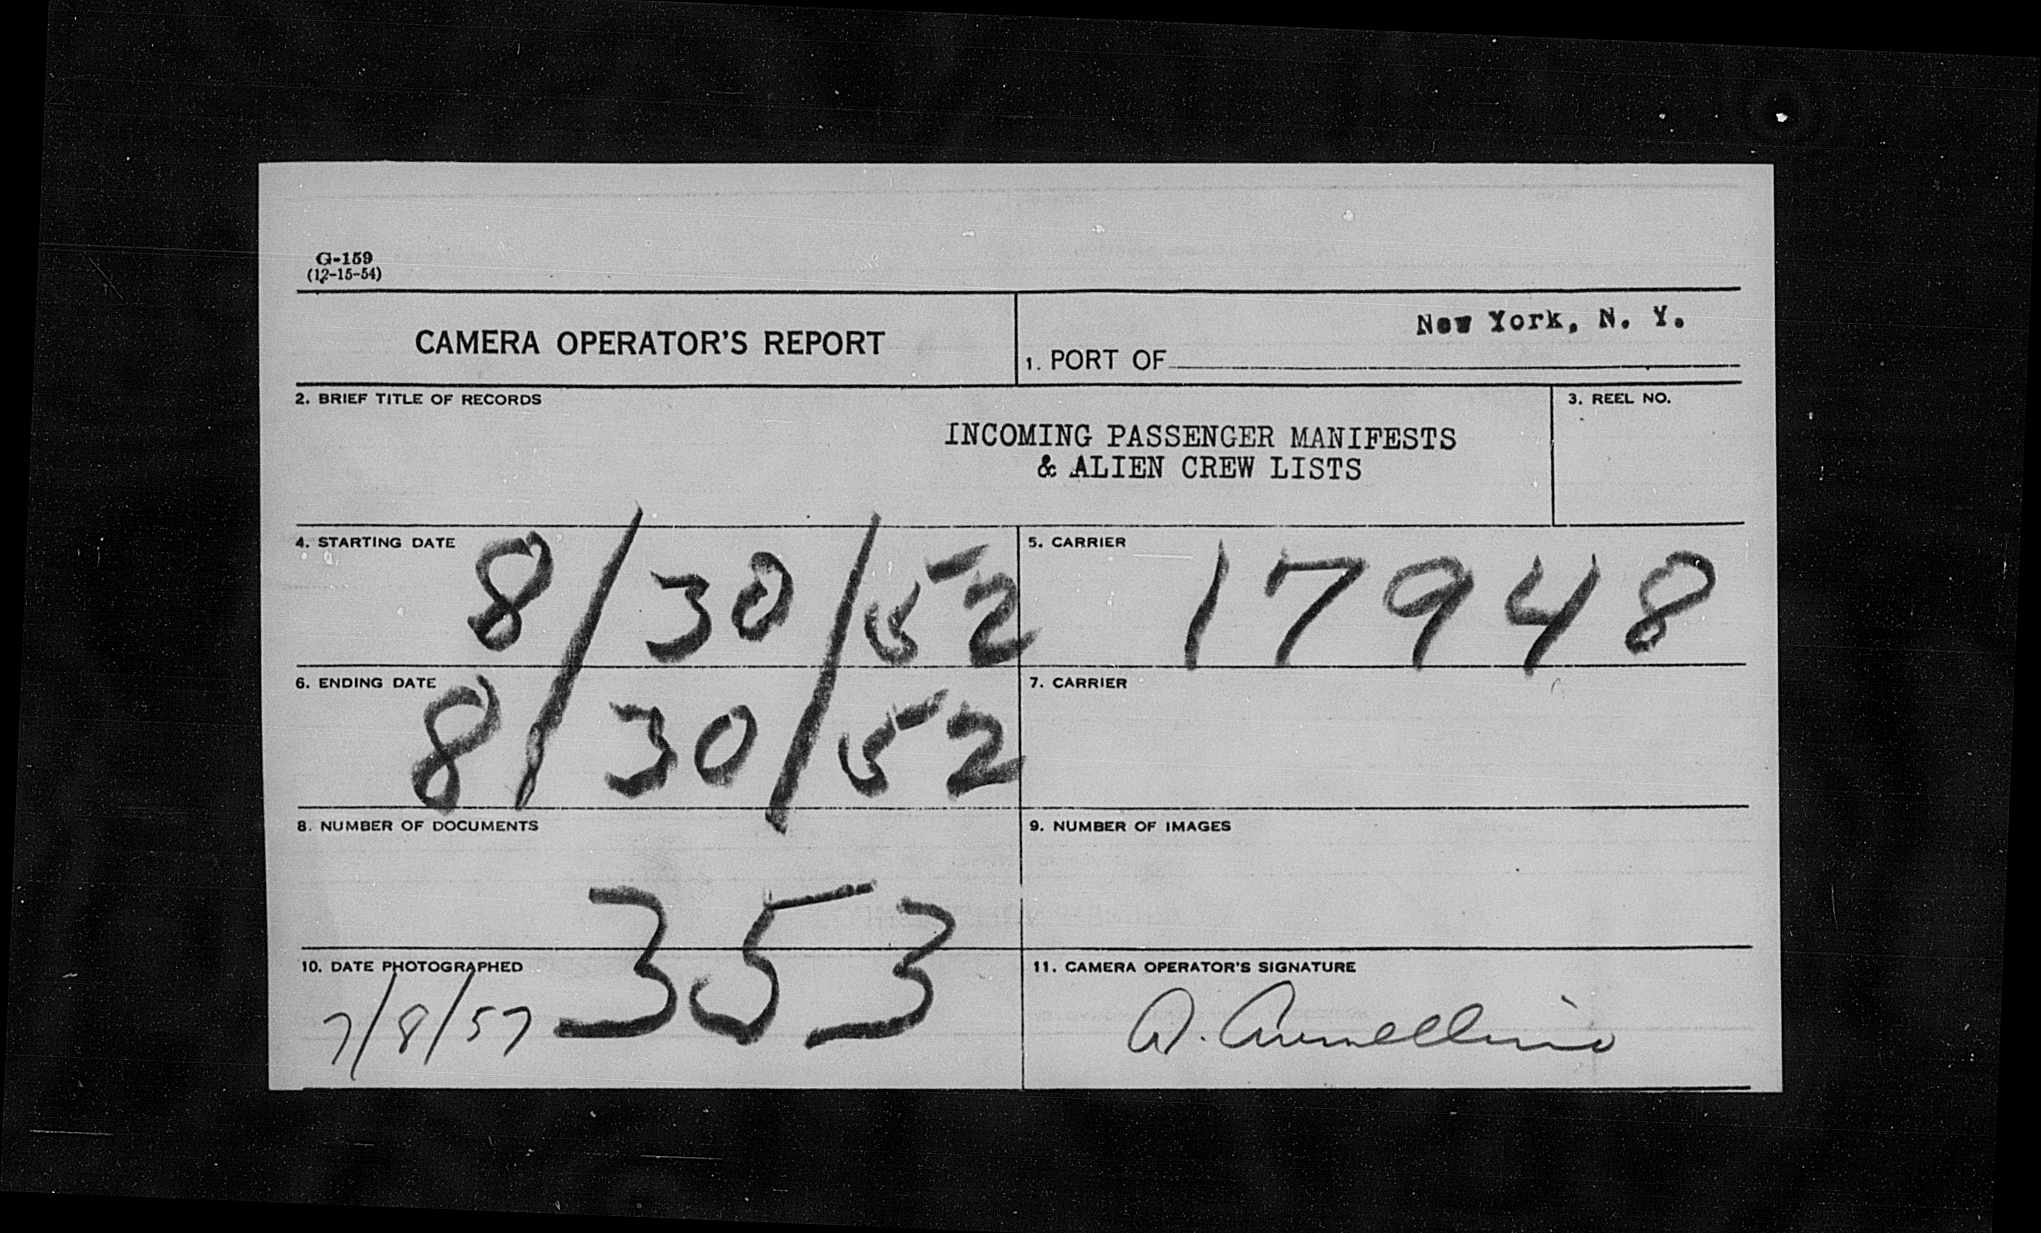 G-159
(12-15-54)
CAMERA OPERATOR'S REPORT
New York, N. Y.
1. PORT OF
2. BRIEF TITLE OF RECORDS
3. REEL NO.
INCOMING PASSENGER MANIFESTS
& ALIEN CREW LISTS
4. STARTING DATE
8/30/52
5. CARRIER
17948
6. ENDING DATE
8/30/52
7. CARRIER
8. NUMBER OF DOCUMENTS
353
9. NUMBER OF IMAGES
10. DATE PHOTOGRAPHED
7/8/57
11. CAMERA OPERATOR'S SIGNATURE